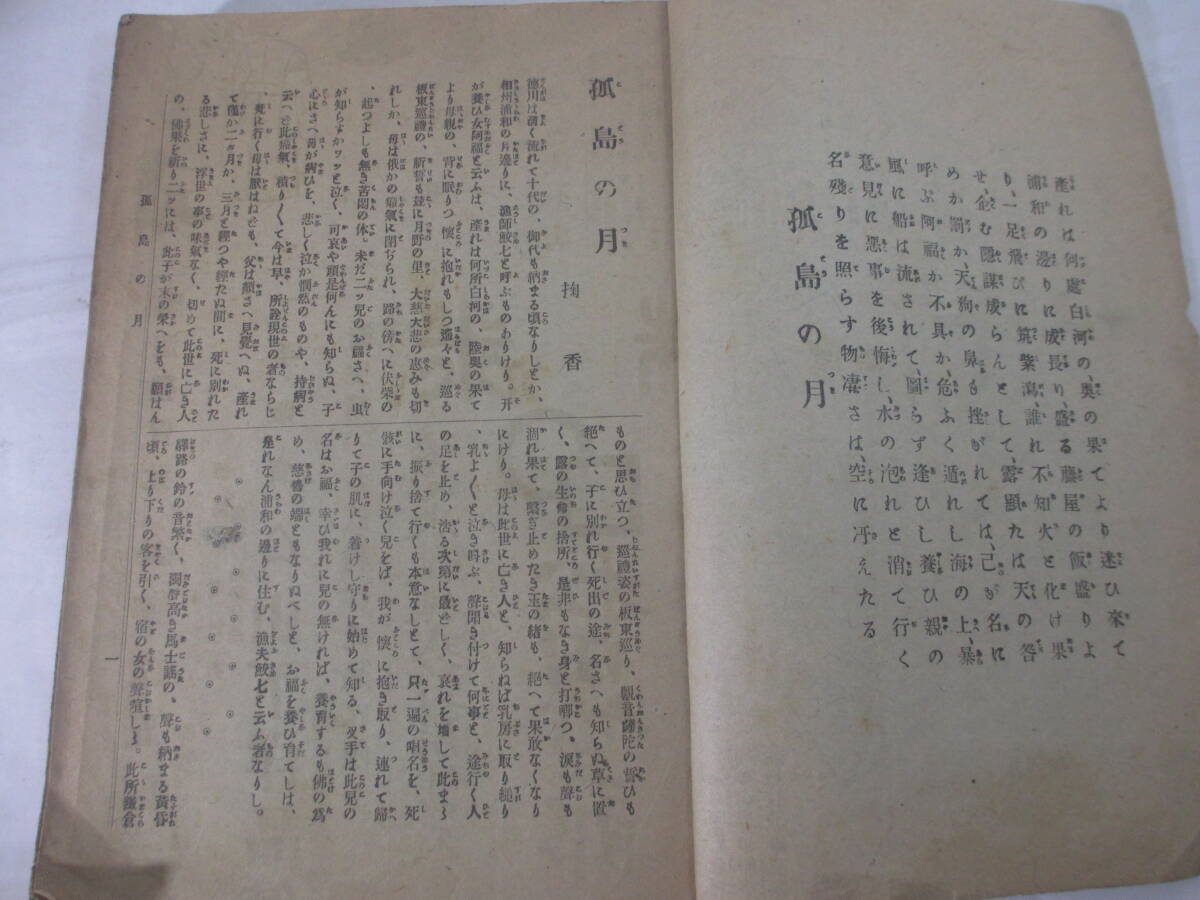 産れは何處白河の、奥の果てより迷ひ來て
浦和の邊りに成長り、盛る藤屋の飯盛りよ
り、一足飛びに筑紫潟、誰れ不知火と化け果
せ、企む隱謀成らんとして、露顯たは天の咎
めか罰か天狗の鼻も挫がれては、己が名に
呼ぶ阿福か不具か、危ふく遁れし海の上、暴
風に船は流されて、圖らず逢ひし養ひ親の
意見に悪事を後悔し、水の泡れと消て行く
名殘りを照らす物凄さは、空に冴えたる
孤島の月
孤島の月
掬香
徳川は清く流れて十代の、御代も納まる頃なりしとか、
相州浦和の片邊りに、漁師鮫七と呼ぶものありけり。
が養ひ女阿福と云ふは、産れは何所白河の、陸奥の果て
より母親の、背に眠りつ懐に抱れもしつ遙々と、巡る
板東巡禮の、祈誓も玆に月野の里、大慈大悲の恵みも切
れしか、母は俄かの痛氣に閉ぢられ、路の傍へに伏柴の
、起つよしも無き苦悶の体。未だ二ッ兒のお福さへ、虫
が知らすかワッと泣く、可哀や頭是何んにも知らぬ、子
心にさへ母が病ひを、悲しく泣か憫然のものや、持病と
云へど此痛氣、積り〱て今は早、所詮現世の者ならじ
、冥に行く母は厭はねども、父は顏さへ見覺へぬ、産れ
て僅か二ヶ月か、三月と經つや經たぬ間に、死に別れた
る悲しさに、浮世の事の味氣なく、切めて此世に亡き人
の、佛果を祈り二ッには、此子が末の榮へをも、願はん
ものと思ひ立つ、巡禮姿の板東巡り、觀音薩陀の誓ひも
絶へて、子に別れ行く死出の途 名さへも知らぬ草に置
く、露の生命の捨所、是非もなき身と打啣つ、涙も聲も
涸れ果て、繫ぎ止めたき玉の緒も、絶へて果敢なくなり
にけり。母は此世に亡き人と、知らねば乳房に取り縋り
、乳よ〱と泣き叫ぶ、聲聞き付けて何事と、途行く人
の足を止め、浩る次第に最どしく、哀れを増して此まゝ
に、振り捨て行くも本意なしとて、只一遍の唱名を、死
骸に手向け泣く兒をば、我が懐に抱き取り、連れて歸
りて子の肌に、着けし守りに始めて知る、扨手は此兒の
名はお福、幸ひ我れに兒の無ければ、養育するも佛の爲
め、慈善の端ともなりぬべしと、お福を養ひ育てしは、
是れなん浦和の邊りに住む、漁夫鮫七と云ふ者なりし。
驛路の鈴の音繁く、濁聲高き馬士謡の、聲も納まる黄昏
頃、上り下りの客を引く、宿の女の聲喧しゝ。此所鎌倉
孤島の月
一